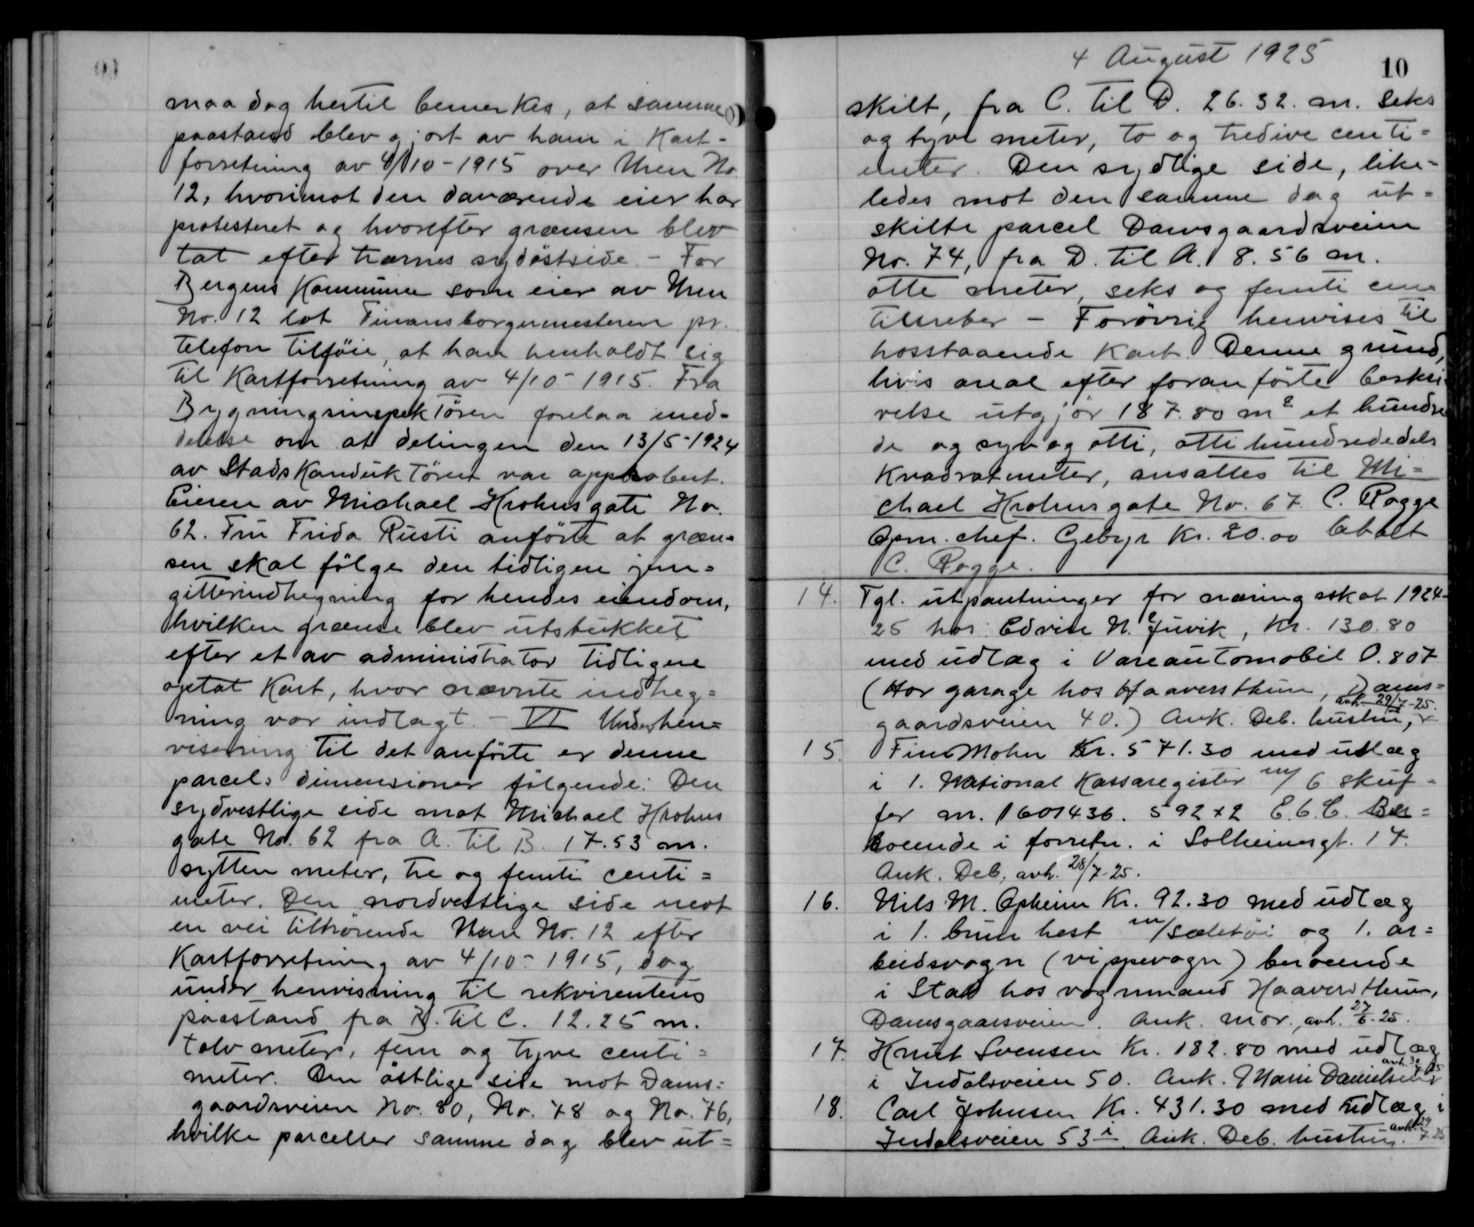 maa dog hertil bemerkes, at samme
paastand blev gjort av ham i Kart-
forretning av 4/10-1915 over Uren No
12, hvorimot den daværende eier har
protesteret og hvorefter grænsen blev
tat efter trærnes sydöstside. - For
Bergens Kommune som eier av Uren
No. 12 lot Finansborgermesteren pr.
telefon tilföie, at han henholdt sig
til Kartforretning av 4/10-1915. Fra
Bygningsinspektören forelaa med-
delelse om at delingen den 13/5-1924
av Stadskonduktöret var approbert.
Eieren av Michael Krohnsgate No.
62. Fru Frida Rusti anförte at græn-
sen skal fölge den tidligen jern-
gitterindhegning for hendes eiendom,
hvilken grænse blev utstukket
efter et av administrator tidligere
optat Kart, hvor nævnte indheg-
ning var indlagt. - VI Under hen-
visning til det anförte er denne
parcels dimensioner fölgende: Den
sydvestlige side mot Michael Krohns
gate No. 62 fra A. til B. 17.53 m.
sytten meter, tre og femti centi=
meter. Den nordvestlige side mot
en vei tilhörende Uren No. 12 efter
Kartforretning av 4/10-1915, dog
under henvisning til rekvirentens
paastand fra B. til C. 12.25 m.
tolv meter, fem og tyve centi=
meter. Den östlige side mot Dams=
gaardsveien No. 80, No. 78 og No. 76,
hvilke parceller samme dag blev ut=
4 August 1925
10
skilt, fra C. til D. 26.32. m. seks
og tyve meter, to og tredive centi=
meter. Den sydlige side, like-
ledes mot den samme dag ut=
skilte parcel Damsgaardsveien
No. 74, fra D. til A. 8.56 m.
otte meter, seks og femti cen
timeter - Forövrig henvises til
hosstaaende Kart. Denne grund,
hvis areal efter foranförte beskri
velse utgjör 187.80 m2 et hundre
de og syv og otti, otti hundrededels
Kvadratmeter, ansattes til Mi=
chael Krohnsgate No. 67 C. Rogge
Opm. chef. Gebyr Kr. 20.00 betalt
C. Rogge.
14. Tgl. utpantninger for næringsskat 1924-
25 hos: Edvin N. Juvik, Kr. 130.80
med udlæg i Vareautomobil O.807
(Hos garage hos Haaversthun, Dams=
avh. 29/7-25.
gaardsveien 40.) Ank. Deb. hustru,
15. Finn Mohn Kr. 571.30 med utlæg
i 1. National Kassaregister m/ 6 skuf-
fer m. 1601436. 592x2 E.6.C. Be=
roende i forretn. i Solheimsgt. 17.
Ank. Deb. avh. 28/7-25.
16. Nils M. Opheim Kr. 92.30 med udlæg
i 1. brun hest m/sæletöi og 1. ar=
beidsvogn (vippevogn) beroende
i Stal hos vognmand Haaversthun,
Damsgaarsveien. Ank. mor. avh. 27/6-25.
17. Knut Svensen Kr. 182.80 med udlæg
i Indalsveien 50. Ank. Marie Danielsen
18. Carl Johnsen Kr. 431.30 med udlæg i
Indalsveien 53 i Ank. Deb. hustru. avh. 29/7 25